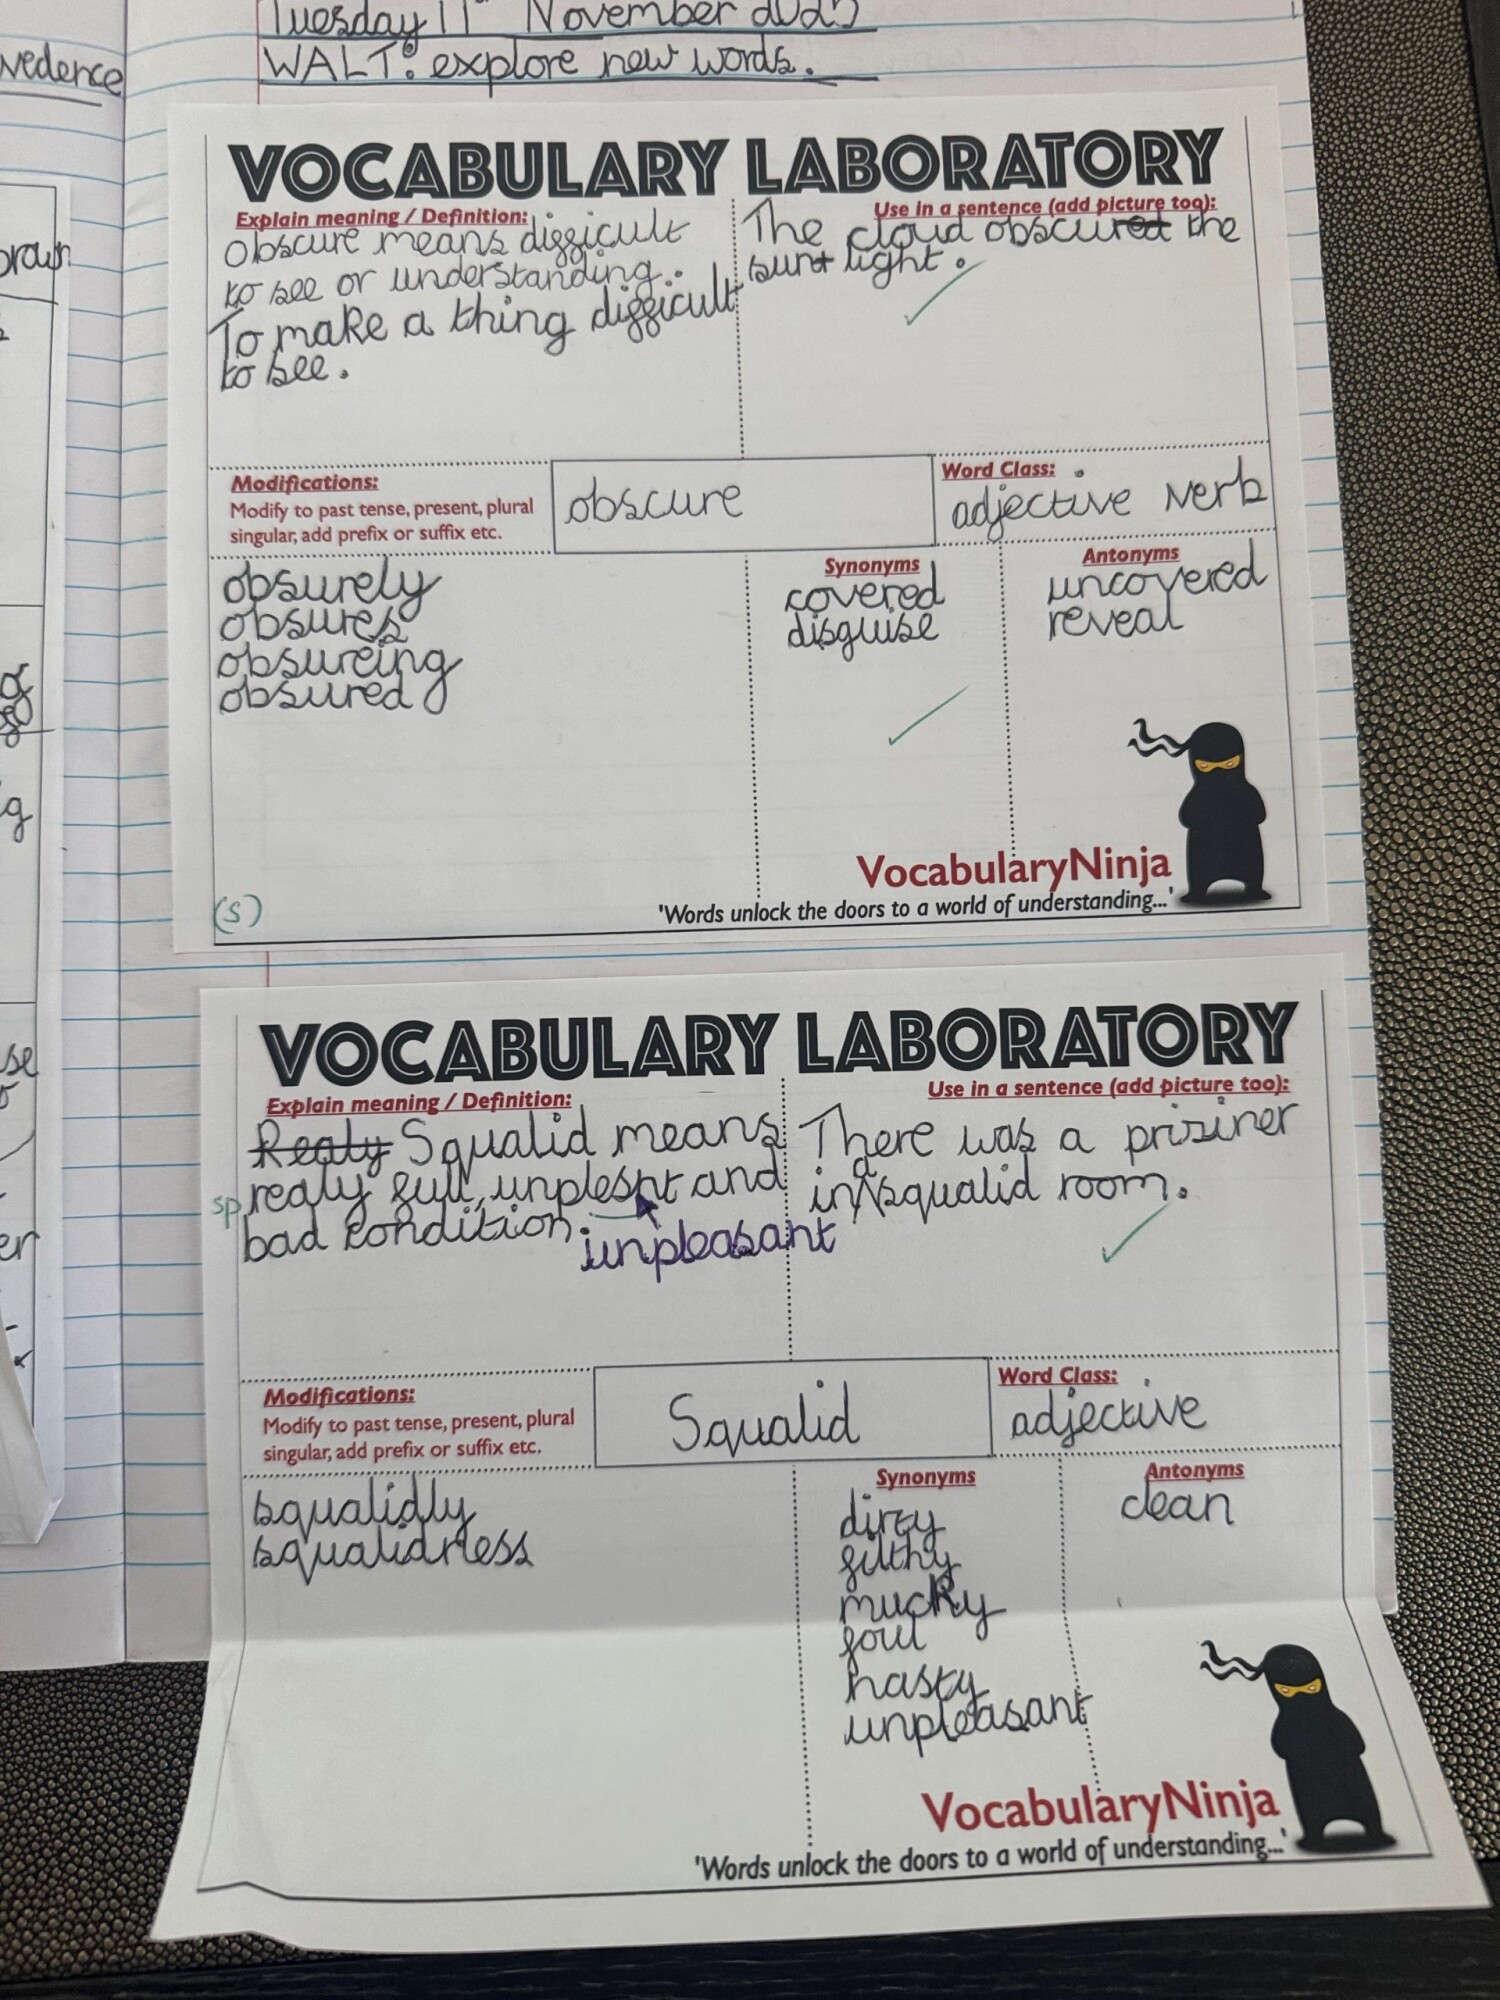 vedence
Tuesday 11th November 2025
WALT: explore new words.
VOCABULARY LABORATORY
Explain meaning / Definition:
obscure means difficult
to see or understanding.
To make a thing difficult
to see.
Use in a sentence (add picture too):
The cloud obscured the
sun light.
Modifications:
Modify to past tense, present, plural
singular, add prefix or suffix etc.
obscure
Word Class:
adjective verb
obsurely
obsures
obsureing
obsured
Synonyms
covered
disguise
Antonyms
uncovered
reveal
(S)
VocabularyNinja
'Words unlock the doors to a world of understanding...'
VOCABULARY LABORATORY
Explain meaning / Definition:
Realy Squalid means
sp realy full, unplesnt and
bad condition.
unpleasant
Use in a sentence (add picture too):
There was a prisiner
in a squalid room.
Modifications:
Modify to past tense, present, plural
singular, add prefix or suffix etc.
Squalid
Word Class:
adjective
squalidly
squalidness
Synonyms
dirty
filthy
mucky
foul
nasty
unpleasant
Antonyms
clean
VocabularyNinja
'Words unlock the doors to a world of understanding...'